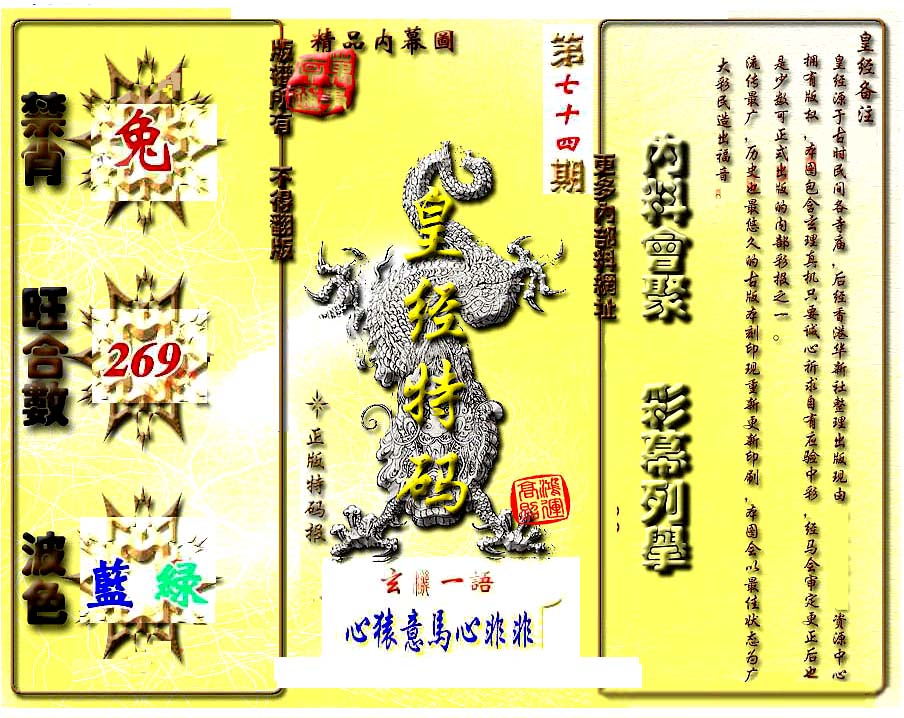 精品内幕圖
版權所有 不得翻版
禁肖
兔
旺合數
269
波色
藍 綠
皇经特码
正版特码报
鴻運
高照
玄機一語
心猿意馬心非非
第七十四期
更多內部料網址
內料會聚 彩幕列舉
皇经备注
皇经源于古时民间各寺庙,后经香港华新社整理出版现由 资源中心
拥有版权,本图包含玄理真机只要诚心祈求自有应验中彩,经马会审定更正后也
是少数可正式出版的内部彩报之一。
流传最广,历史也最悠久的古版本刻印现重新更新印刷,本图会以最佳状态为广
大彩民造出福音